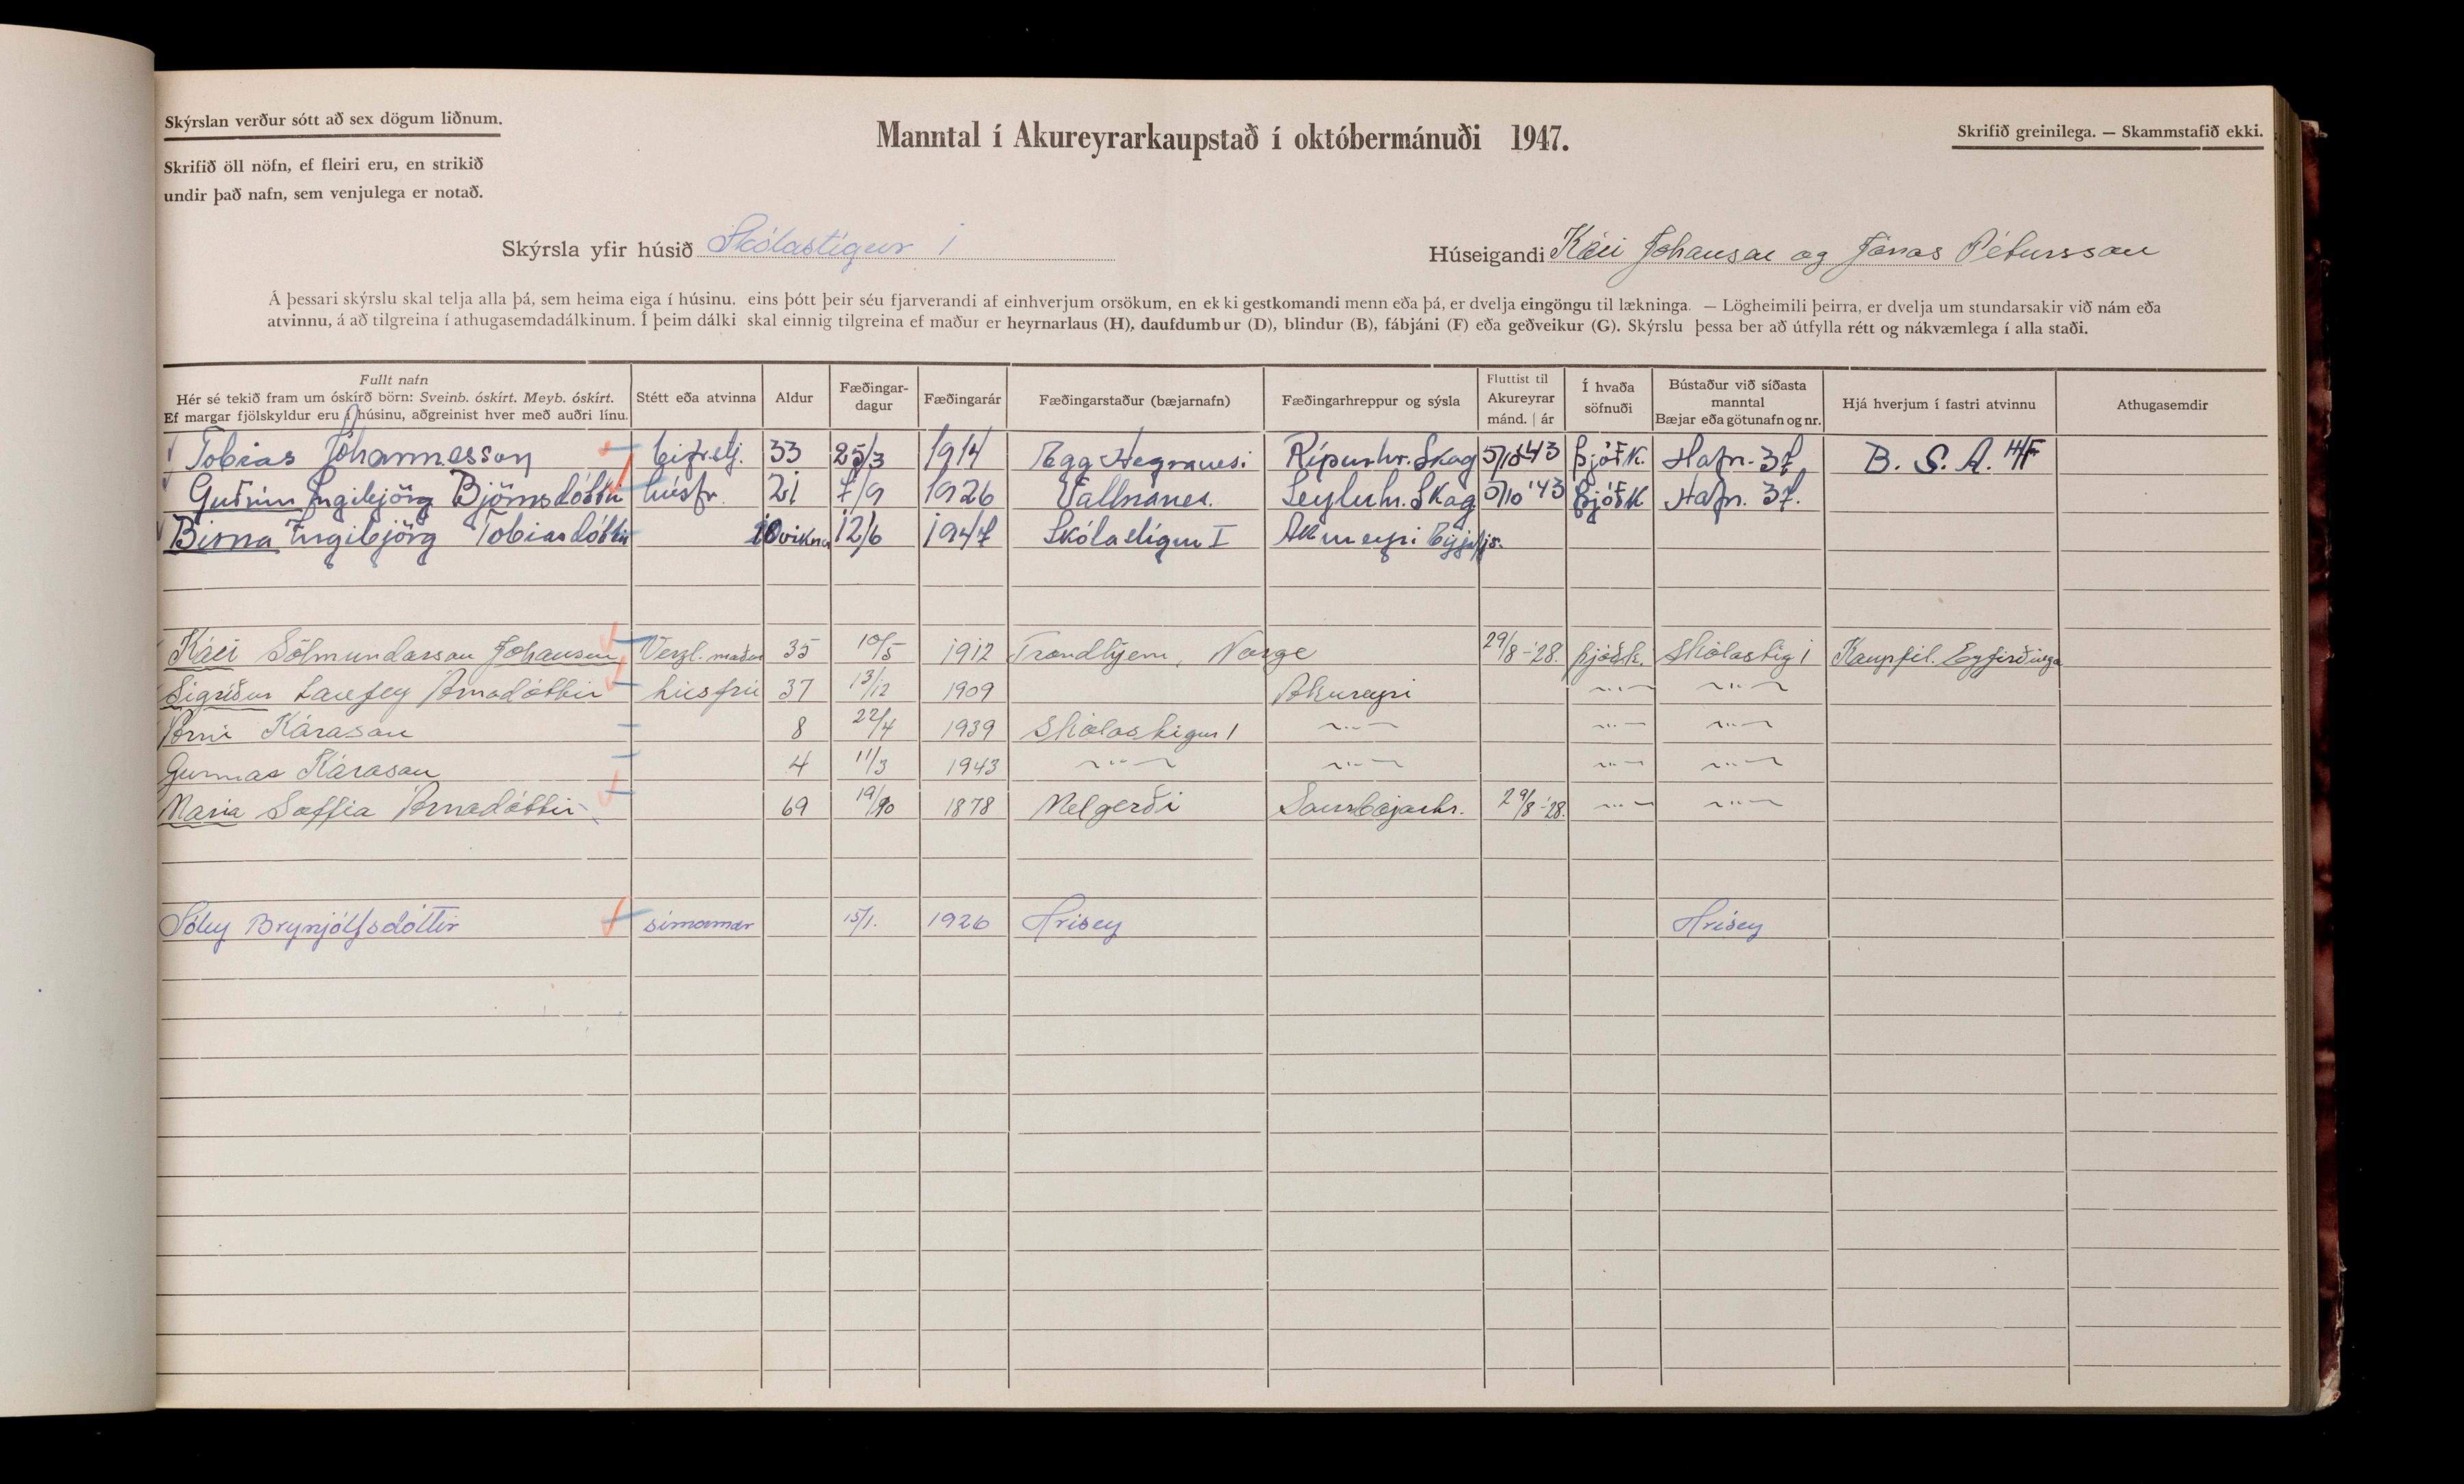 Skýrslan verður sótt að sex dögum liðnum.
Manntal í Akureyrarkaupstað í októbermánuði 1947.
Skrifið greinilega. — Skammstafið ekki.
Skrifið öll nöfn, ef fleiri eru, en strikið
undir það nafn, sem venjulega er notað.
Skýrsla yfir húsið Skólastígur 1
Húseigandi Kári Johansen og Jónas Pétursson
Á þessari skýrslu skal telja alla þá, sem heima eiga í húsinu, eins þótt þeir séu fjarverandi af einhverjum orsökum, en ekki gestkomandi menn eða þá, er dvelja eingöngu til lækninga. — Lögheimili þeirra, er dvelja um stundarsakir við nám eða
atvinnu, á að tilgreina í athugasemdadálkinum. Í þeim dálki skal einnig tilgreina ef maður er heyrnarlaus (H), daufdumbur (D), blindur (B), fábjáni (F) eða geðveikur (G). Skýrslu þessa ber að útfylla rétt og nákvæmlega í alla staði.
Fullt nafn
Hér sé tekið fram um óskírð börn: Sveinb. óskírt. Meyb. óskírt.
Ef margar fjölskyldur eru í húsinu, aðgreinist hver með auðri línu.
Stétt eða atvinna
Aldur
Fæðingar-
dagur
Fæðingarár
Fæðingarstaður (bæjarnafn)
Fæðingarhreppur og sýsla
Fluttist til
Akureyrar
mánd. | ár
Í hvaða
söfnuði
Bústaður við síðasta
manntal
Bæjar eða götunafn og nr.
Hjá hverjum í fastri atvinnu
Athugasemdir
Tobias Jóhannesson bifrstj. 33 25/3 1914 Egg Hegranesi Rípurhr. Skag 5/10 '43 þjóðk. Hafn. 37. B. S. A. H/F
Guðrún Ingibjörg Björnsdóttir húsfr. 21 7/9 1926 Vallanes. Seyluhr. Skag 5/10 '43 þjóðk Hafn. 37.
Birna Ingibjörg Tobiasdóttir vikna 12/6 1947 Skólastígur I Akureyri Eyjafjs.
Kári Sölmundarson Johansen Verzl.maður 35 10/5 1912 Trondhjem, Norge 29/8-'28. þjóðk. Skólastíg 1 Kaupfél. Eyfirðinga
Sigríður Laufey Árnadóttir húsfrú 37 13/12 1909 Akureyri —"— —"—
Árni Kárason 8 22/4 1939 Skólastígur 1 —"— —"— —"—
Gunnar Kárason 4 11/3 1943 —"— —"— —"— —"—
María Soffía Árnadóttir 69 1878 Melgerði Saurbæjarhr. 29/8-'28. —"— —"—
Sóley Brynjólfsdóttir símamær 15/1. 1926 Hrísey Hrísey